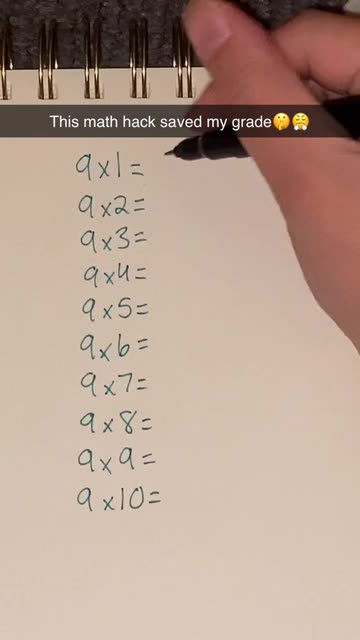 This math hack saved my grade🤫😤
9x1=
9x2=
9x3=
9x4=
9x5=
9x6=
9x7=
9x8=
9x9=
9x10=